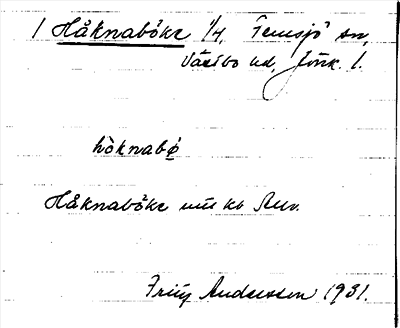 1 Håknaböke 1/4, Femsjö sn,
Västbo hd, Jönk. l.
hòknabø
Håknaböke
Fritz Andersson 1931.